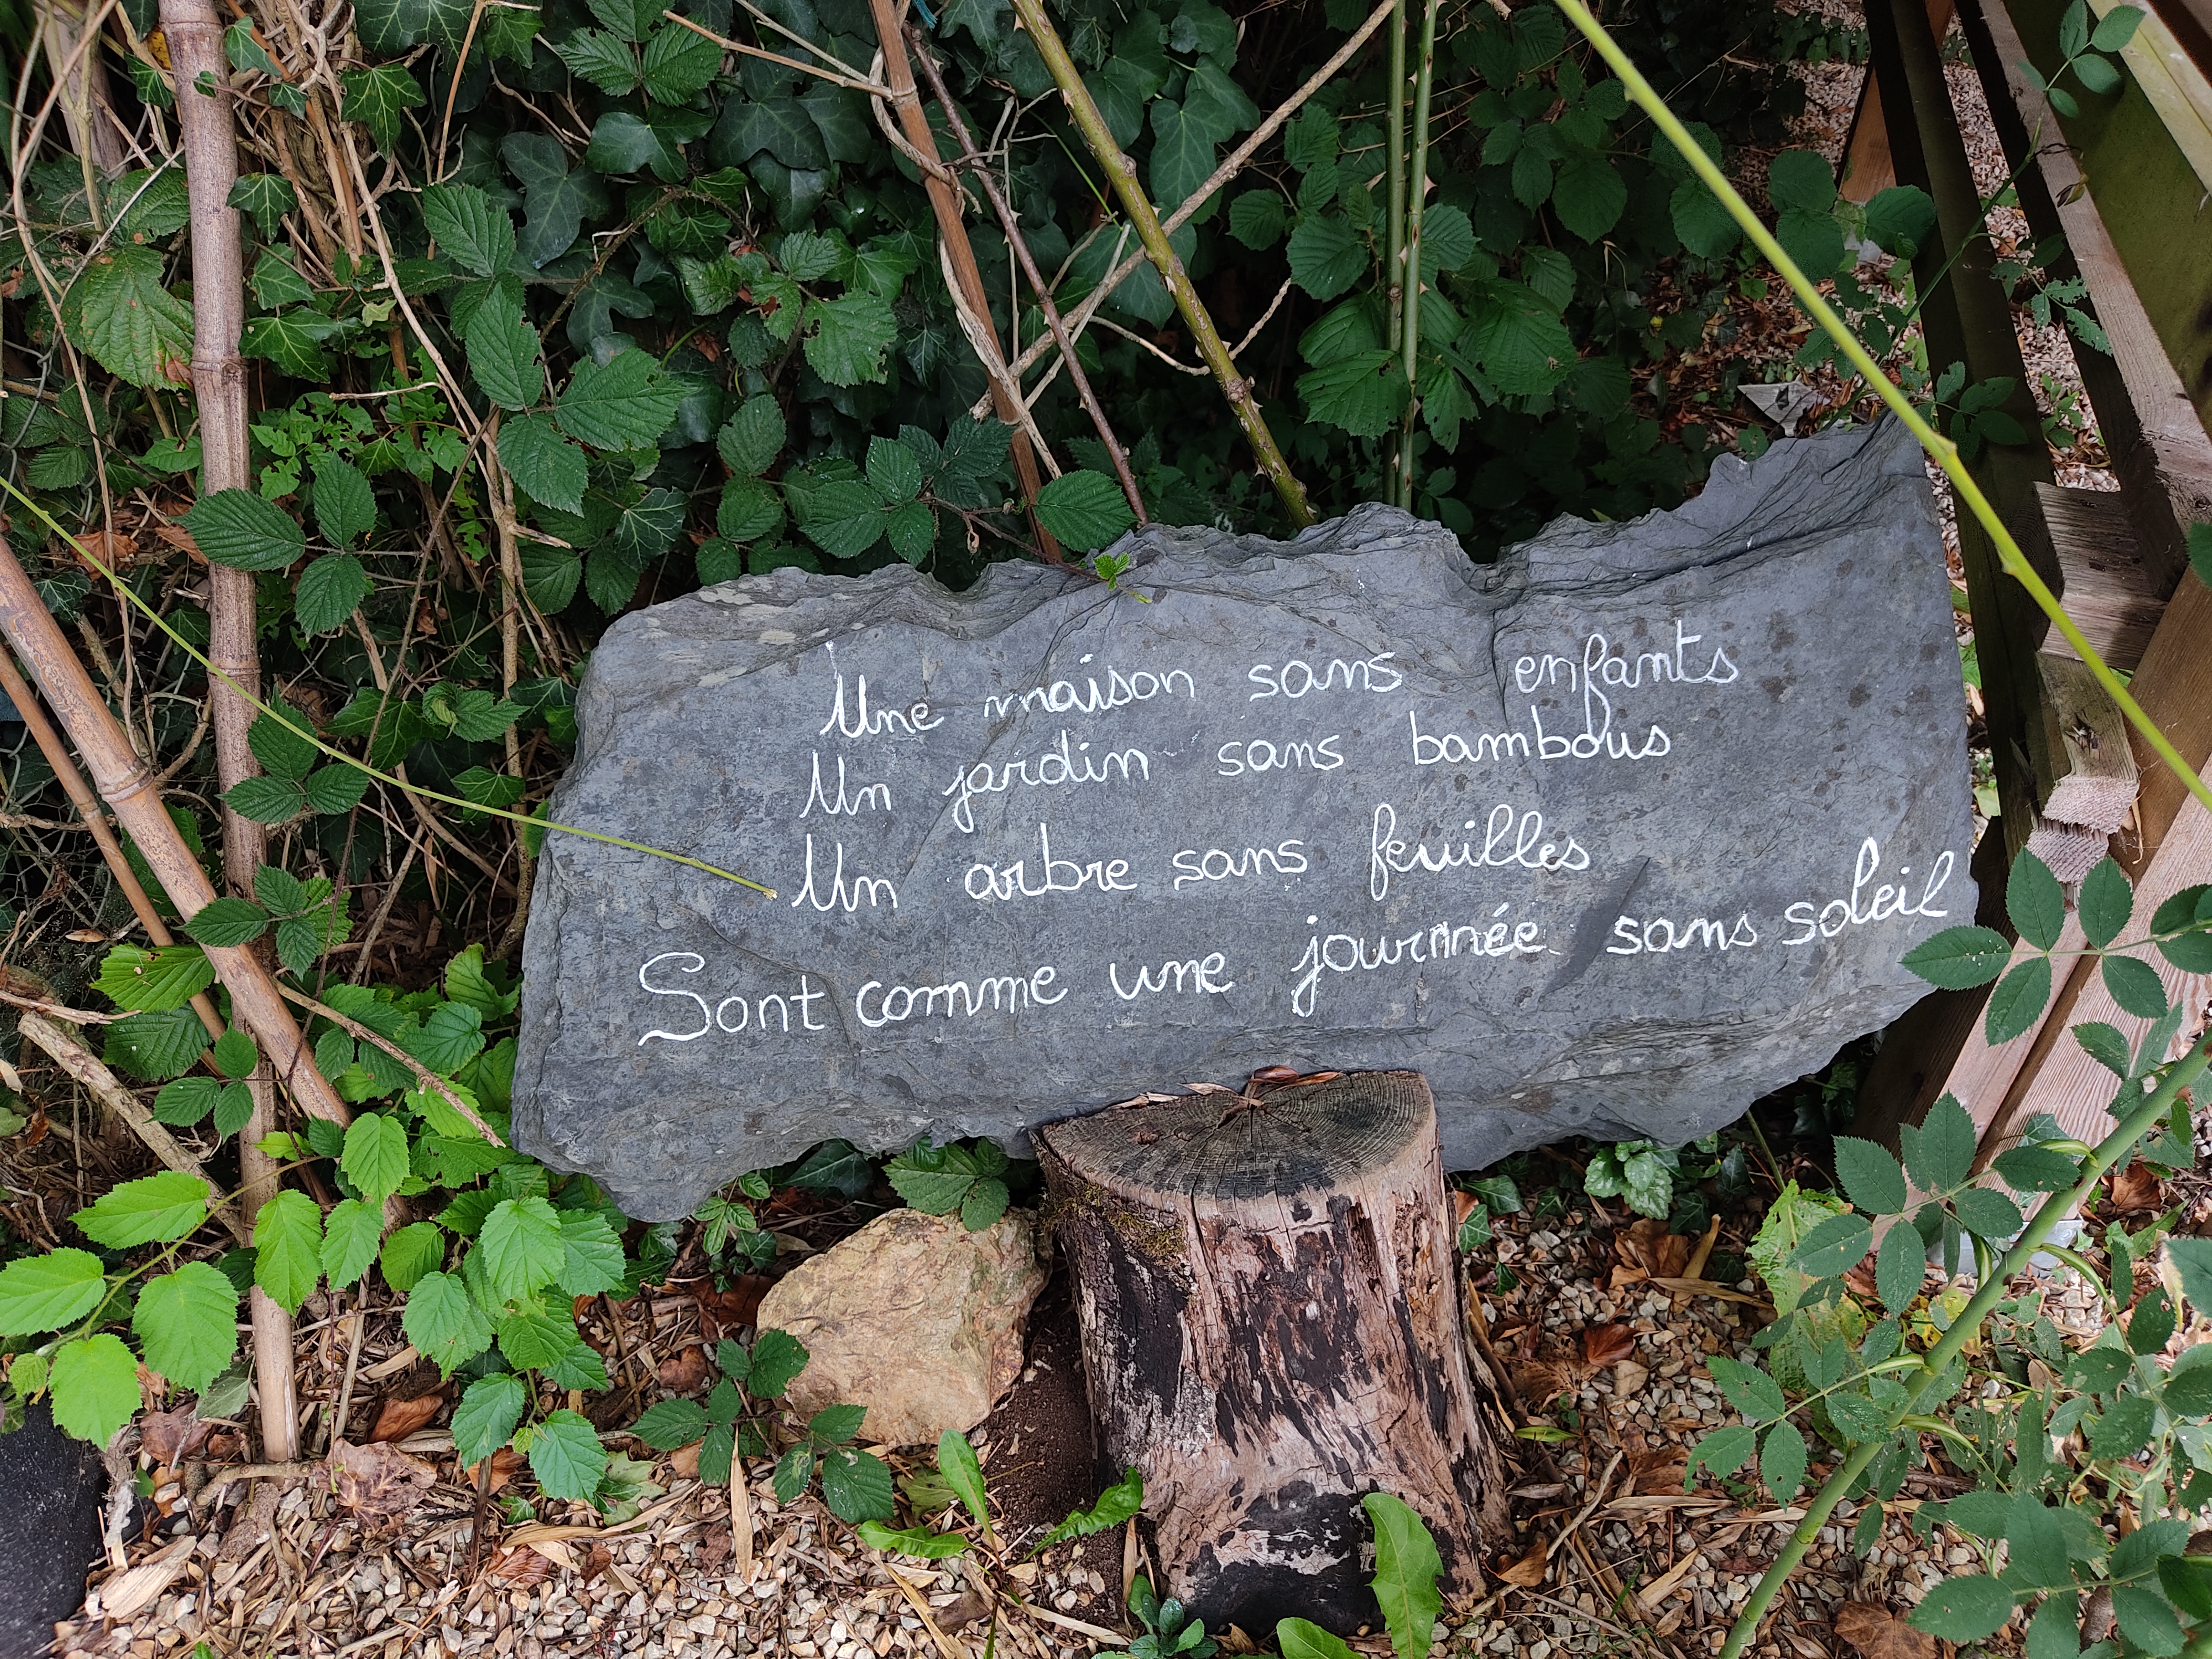 Une maison sans enfants
Un jardin sans bambous
Un arbre sans feuilles
Sont comme une journée sans soleil